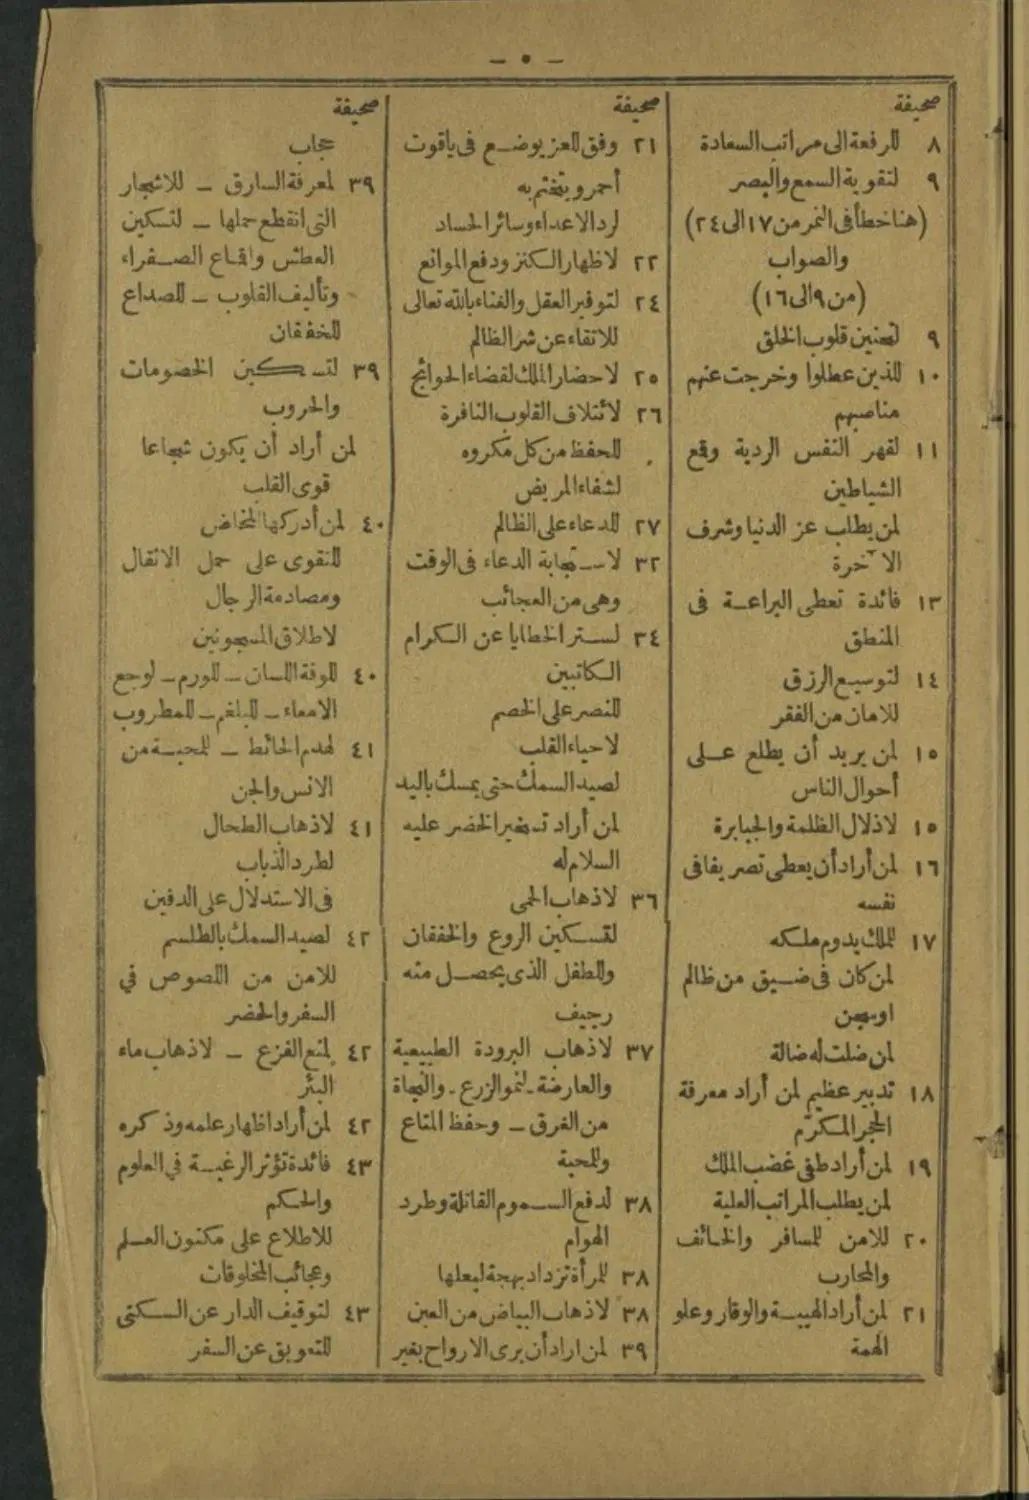 — ٥ —
صحيفة
٨ للرفعة الى مراتب السعادة
٩ لتقوية السمع والبصر
(هنا خطأ فى النمر من ١٧ الى ٢٤)
والصواب
(من ٩ الى ١٦)
٩ لتحنين قلوب الخلق
١٠ للذين عطلوا وخرجت عنهم
مناصبهم
١١ لقهر النفس الردية وقمع
الشياطين
لمن يطلب عز الدنيا وشرف
الآخرة
١٣ فائدة تعطى البراعة فى
المنطق
١٤ لتوسيع الرزق
للامان من الفقر
١٥ لمن يريد أن يطلع على
أحوال الناس
١٥ لاذلال الظلمة والجبابرة
١٦ لمن أراد أن يعطى تصريفا فى
نفسه
١٧ للملك يدوم ملكه
لمن كان فى ضيق من ظالم
او سجن
لمن ضلت له ضالة
١٨ تدبير عظيم لمن أراد معرفة
الحجر المكرم
١٩ لمن أراد طفى غضب الملك
لمن يطلب المراتب العلية
٢٠ للامن للمسافر والخائف
والمحارب
٢١ لمن أراد الهيبة والوقار وعلو
الهمة
صحيفة
٢١ وفق للعز يوضع فى ياقوت
أحمر ويتختم به
لرد الاعداء وسائر الحساد
٢٢ لاظهار الكنز ودفع الموانع
٢٤ لتوفير العقل والغناء بالله تعالى
للاتقاء عن شر الظالم
٢٥ لاحضار الملك لقضاء الحوائج
٢٦ لائتلاف القلوب النافرة
للحفظ من كل مكروه
لشفاء المريض
٢٧ للدعاء على الظالم
٣٢ لاستجابة الدعاء فى الوقت
وهى من العجائب
٣٤ لستر الخطايا عن الكرام
الكاتبين
للنصر على الخصم
لاحياء القلب
لصيد السمك حتى يمسك باليد
لمن أراد تسخير الخضر عليه
السلام له
٣٦ لاذهاب الحمى
لتسكين الروع والخفقان
وللطفل الذى يحصل منه
رجيف
٣٧ لاذهاب البرودة الطبيعية
والعارضة ـ لنمو الزرع ـ والنجاة
من الغرق ـ وحفظ المتاع
وللمحبة
٣٨ لدفع السموم القاتلة وطرد
الهوام
٣٨ للمرأة تزداد بهجة لبعلها
٣٨ لاذهاب البياض من العين
٣٩ لمن اراد أن يرى الارواح بغير
صحيفة
حجاب
٣٩ لمعرفة السارق ـ للاشجار
التى انقطع حملها ـ لتسكين
العطش واقماع الصفراء
وتأليف القلوب ـ للصداع
للخفقان
٣٩ لتسكين الخصومات
والحروب
لمن أراد أن يكون شجاعا
قوى القلب
٤٠ لمن أدركها المخاض
للتقوى على حمل الاثقال
ومصادمة الرجال
لاطلاق المسجونين
٤٠ للوقة اللسان ـ للورم ـ لوجع
الامعاء ـ للبلغم ـ للمطروب
٤١ لهدم الحائط ـ للمحبة من
الانس والجن
٤١ لاذهاب الطحال
لطرد الذباب
فى الاستدلال على الدفين
٤٢ لصيد السمك بالطلسم
للامن من اللصوص في
السفر والحضر
٤٢ لمنع الفزع ـ لاذهاب ماء
البئر
٤٢ لمن أراد اظهار علمه وذكره
٤٣ فائدة تؤثر الرغبة في العلوم
والحكم
للاطلاع على مكنون العلم
وعجائب المخلوقات
٤٣ لتوقيف الدار عن السكنى
للتعويق عن السفر